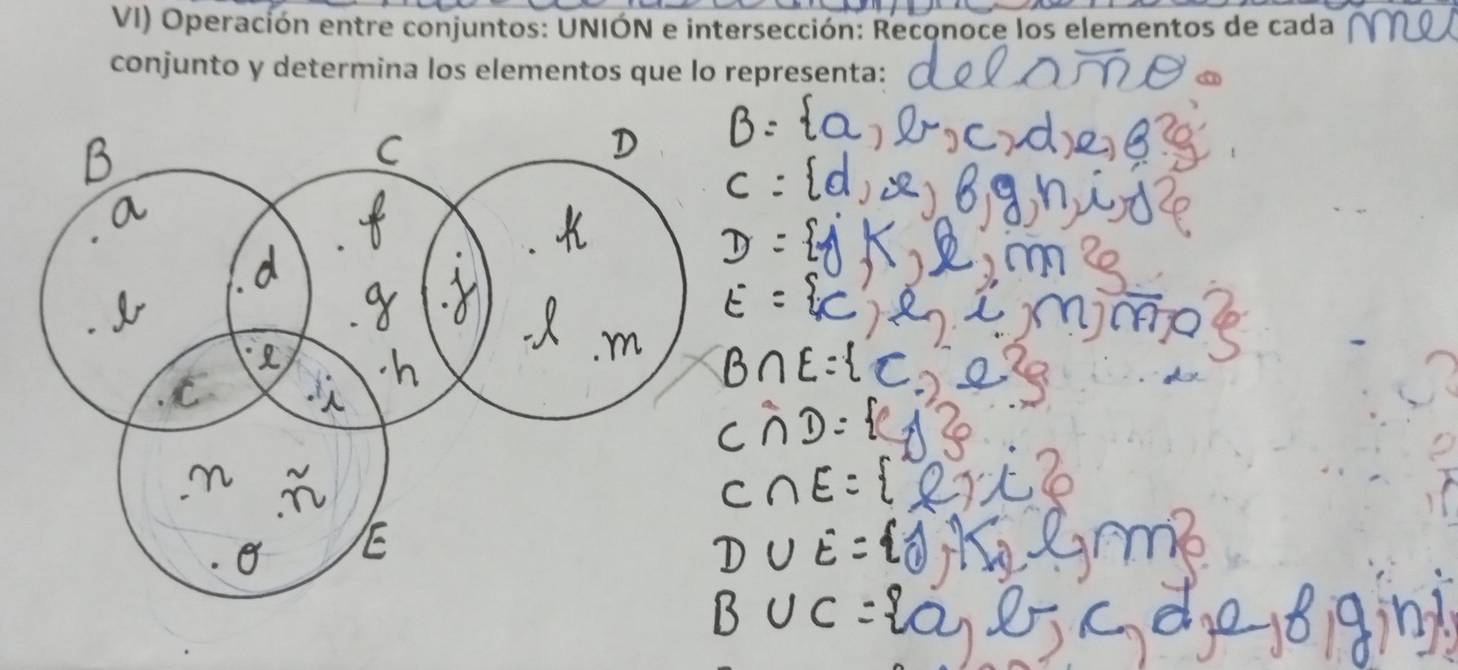 VI) Operación entre conjuntos: UNIÓN e intersección: Reconoce los elementos de cada
conjunto y determina los elementos que lo representa: del año.
B = {a, b, c, d, e, f}
C = {d, e, f, g, h, i, j}
D = {j, K, l, m}
E = {c, e, i, n, ñ, o}
B ∩ E = {c, e}
C ∩ D = {j}
C ∩ E = {e, i}
D ∪ E = {j, K, l, m}
B ∪ C = {a, b, c, d, e, f, g, h, i,
B
C
D
.a
.f
.k
.d
.b
.g
.j
.l
.m
.e
.h
.c
.i
.n
.ñ
.o
E